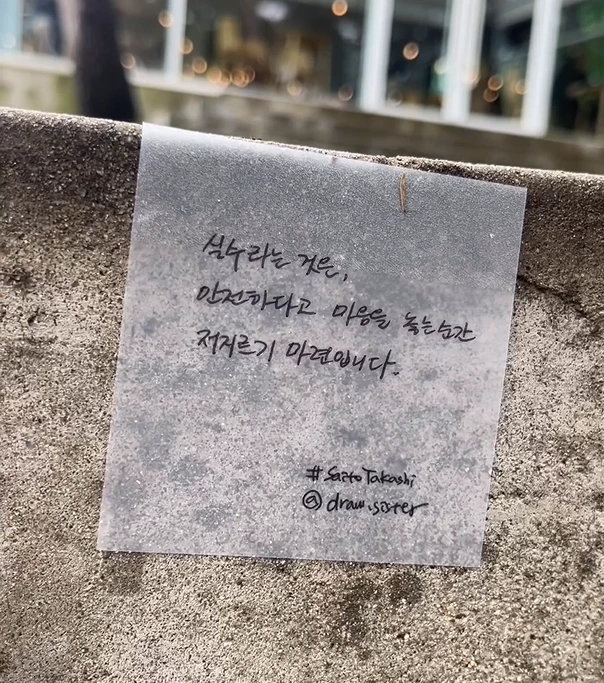 실수라는 것은,
안전하다고 마음을 놓는 순간
저지르기 마련입니다.
# Saito Takashi
@ draw.sister